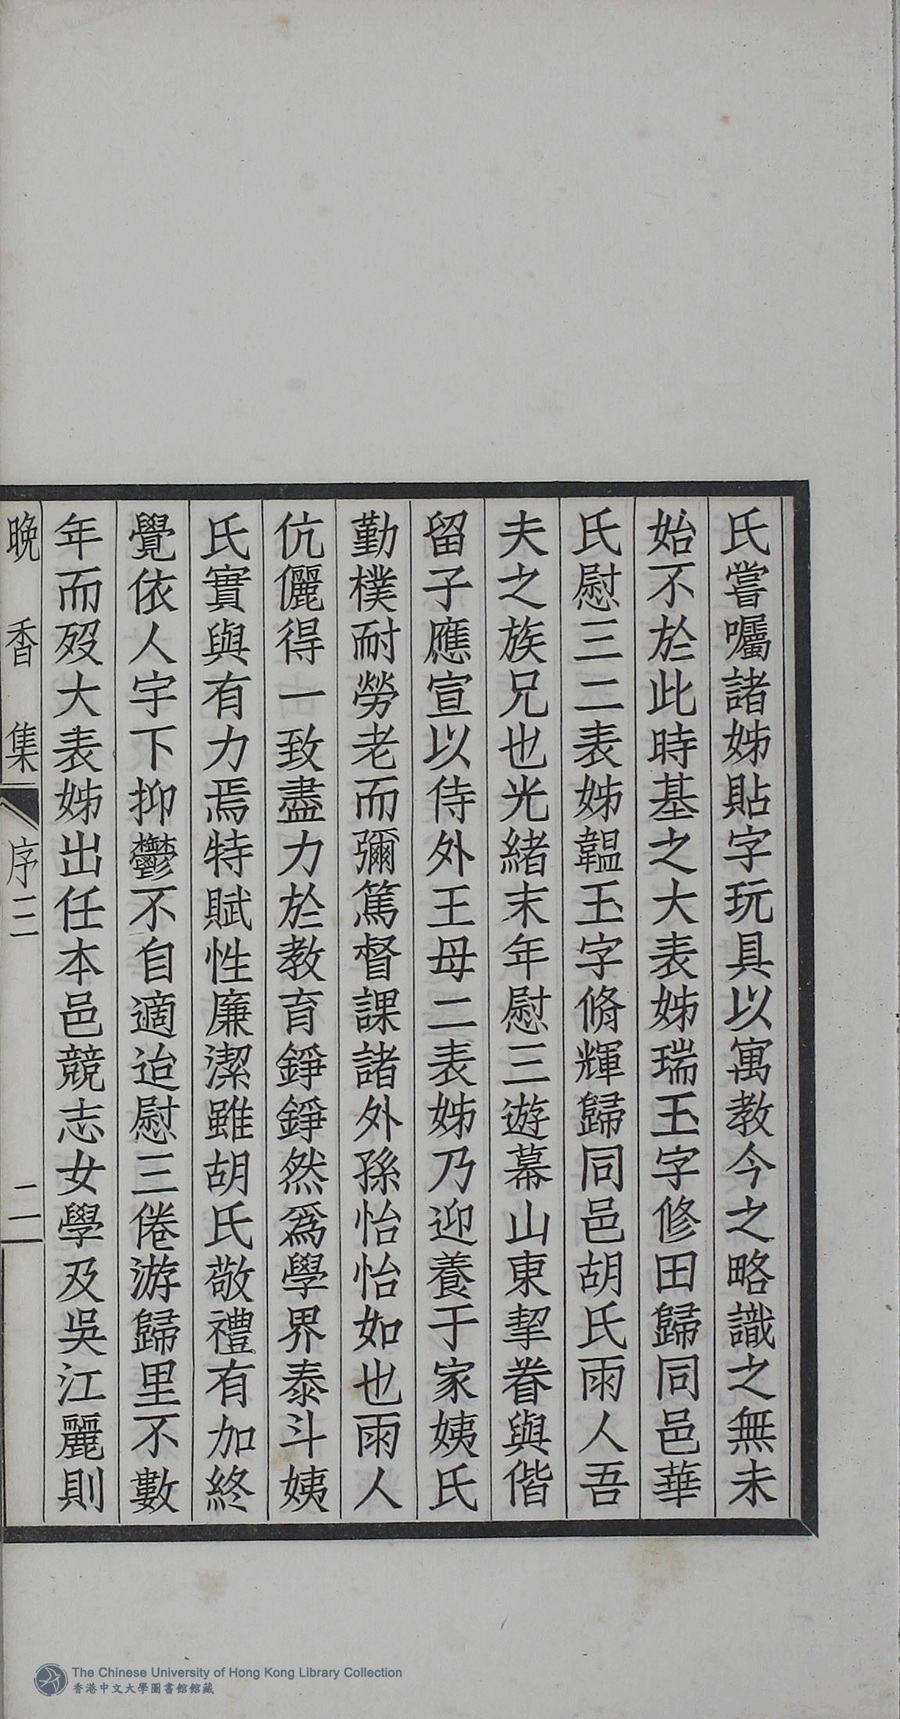 氏嘗囑諸姊貼字玩具以寓教今之略識之無未
始不於此時基之大表姊瑞玉字修田歸同邑華
氏慰三二表姊韞玉字脩輝歸同邑胡氏雨人吾
夫之族兄也光緒末年慰三遊幕山東挈眷與偕
留子應宣以侍外王母二表姊乃迎養于家姨氏
勤樸耐勞老而彌篤督課諸外孫怡怡如也雨人
伉儷得一致盡力於教育錚錚然爲學界泰斗姨
氏實與有力焉特賦性廉潔雖胡氏敬禮有加終
覺依人宇下抑鬱不自適迨慰三倦游歸里不數
年而歿大表姊出任本邑競志女學及吳江麗則
晚香集 序三 二
The Chinese University of Hong Kong Library Collection
香港中文大學圖書館館藏